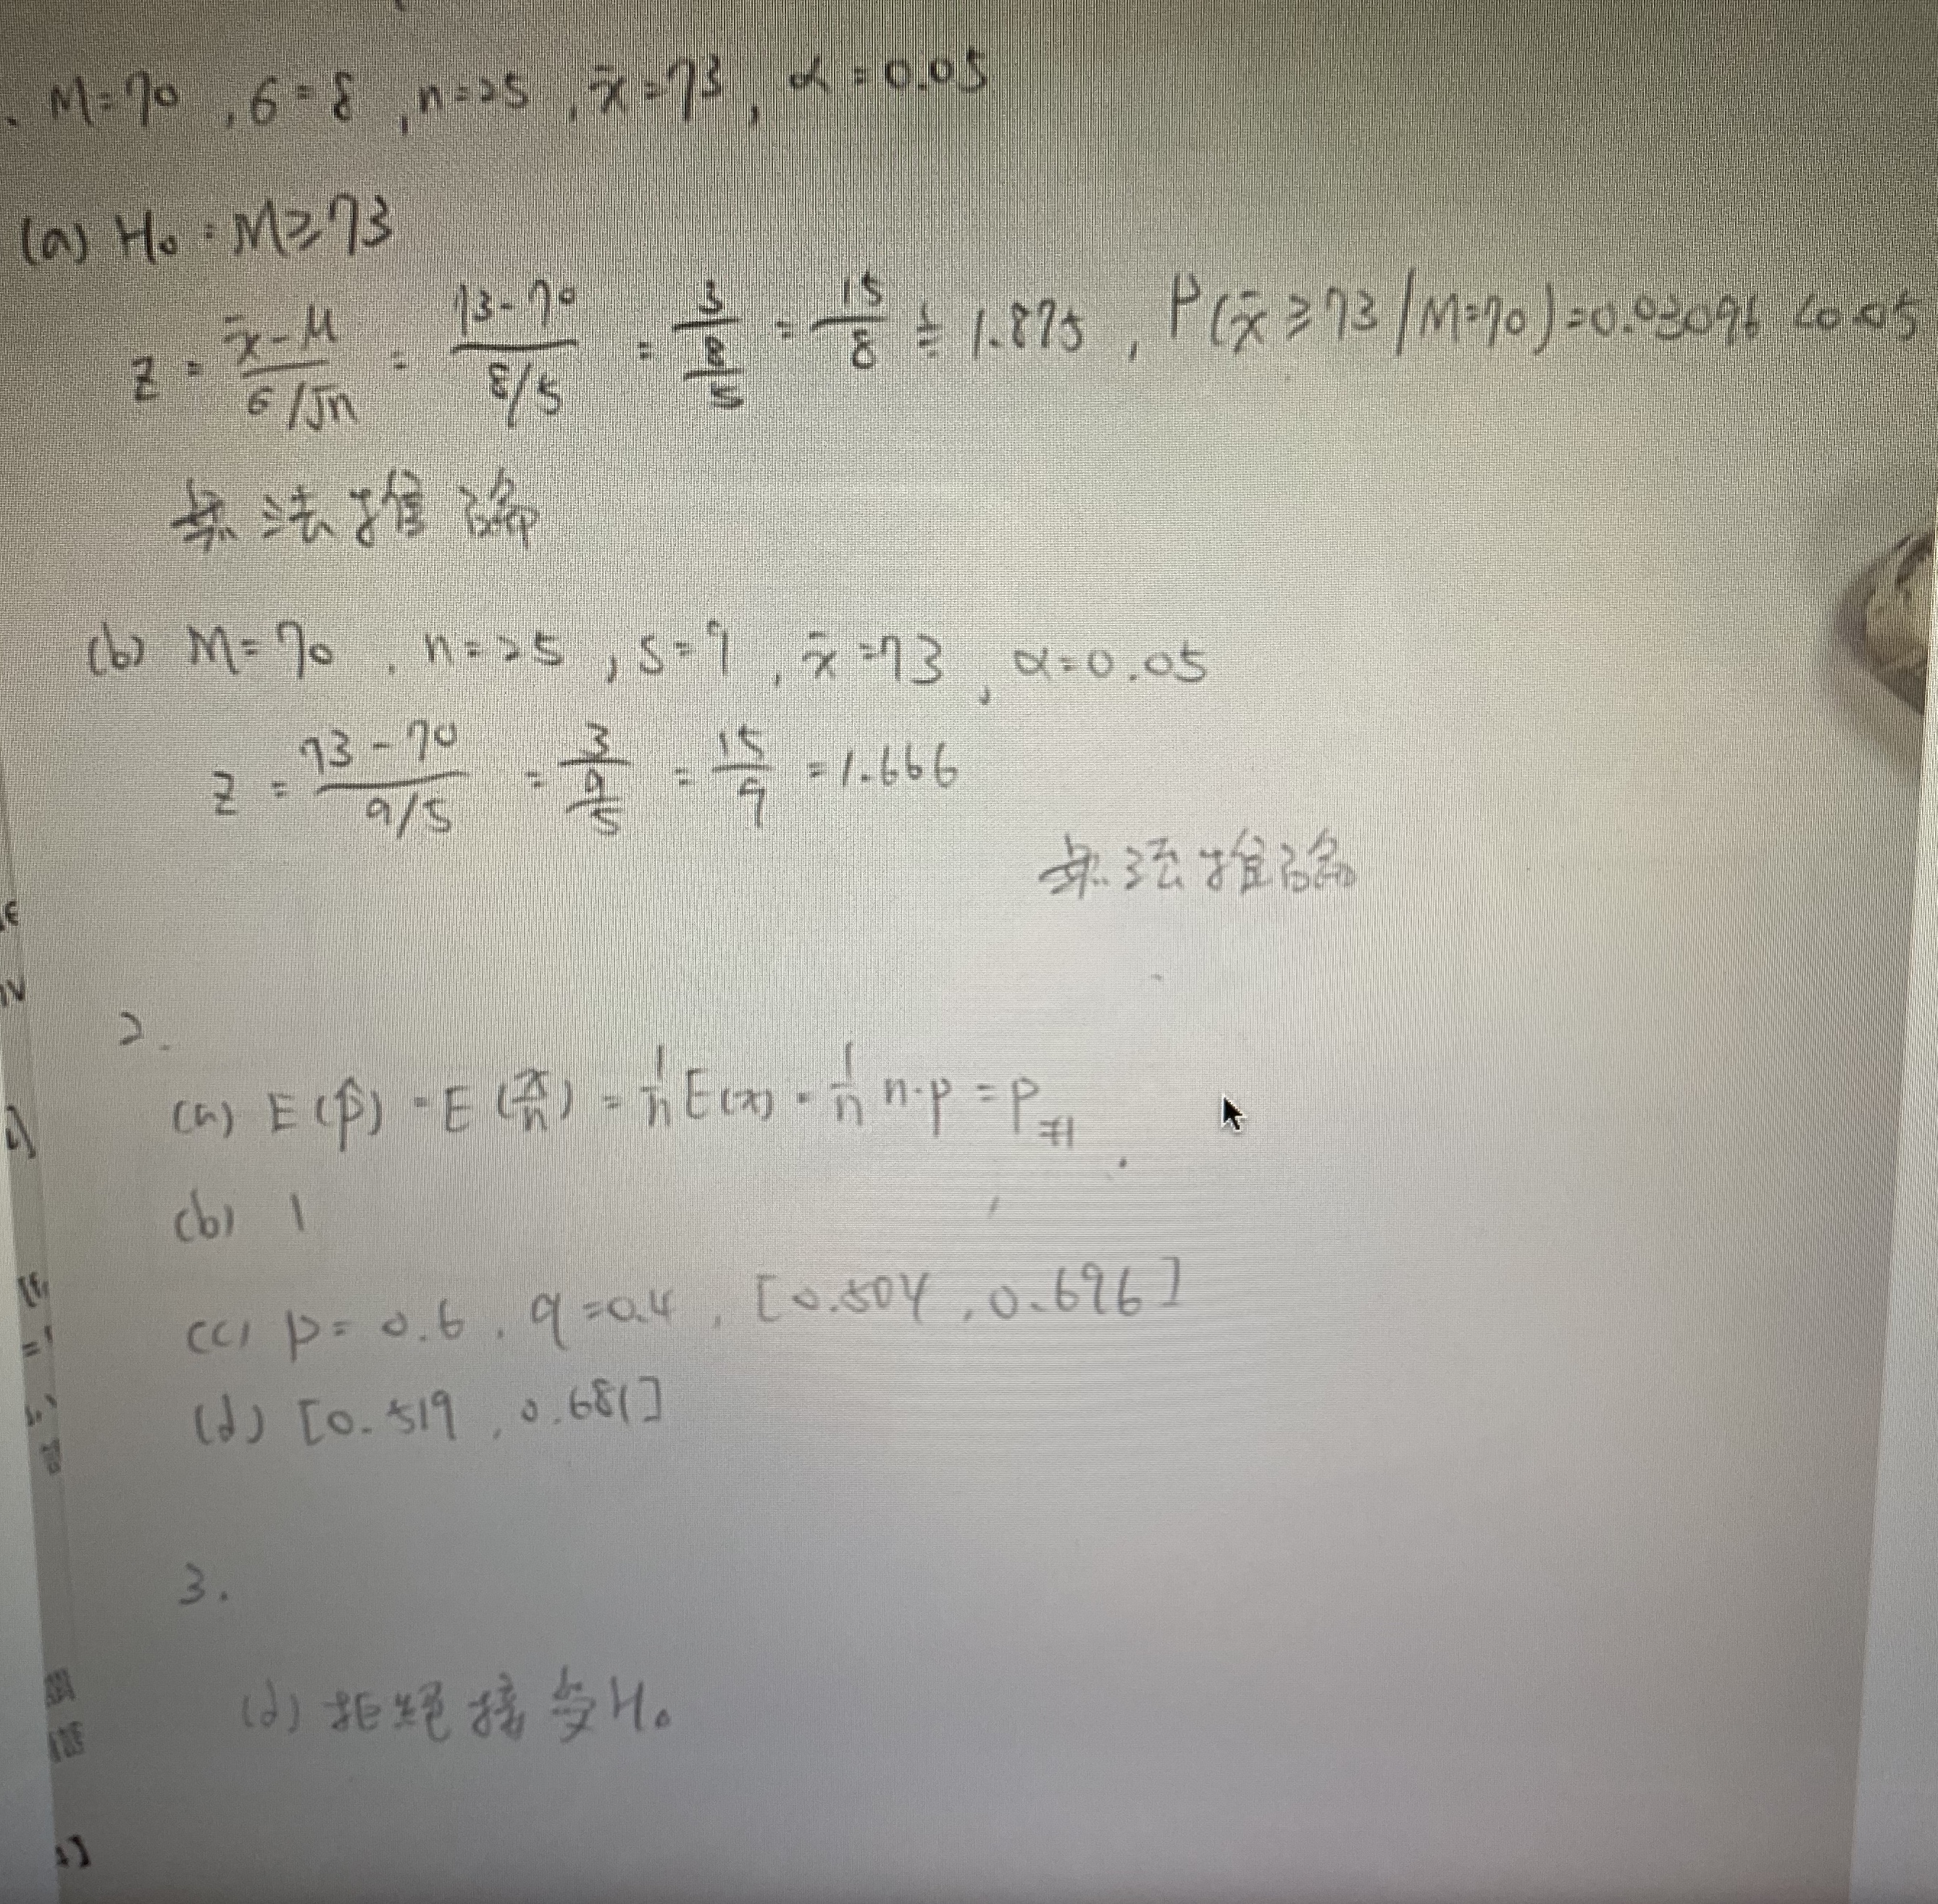 . M=70 , σ=8 , n=25 , x̄=73 , α=0.05
(a) H₀ : M≥73
z = (x̄-μ)/(σ/√n) = (73-70)/(8/5) = 3/(8/5) = 15/8 ≒ 1.875 , P(x̄≥73/M=70)=0.03096<0.05
無法推論
(b) M=70 . n=25 , s=9 , x̄=73 , α=0.05
z = (73-70)/(9/5) = 3/(9/5) = 15/9 = 1.666
無法推論
2.
(a) E(p̂) = E(x/n) = 1/n E(x) = 1/n n·p = p #
(b) 1
(c) p=0.6 . q=0.4 , [0.504 , 0.696]
(d) [0.519 , 0.681]
3.
(d) 拒絕接受H₀